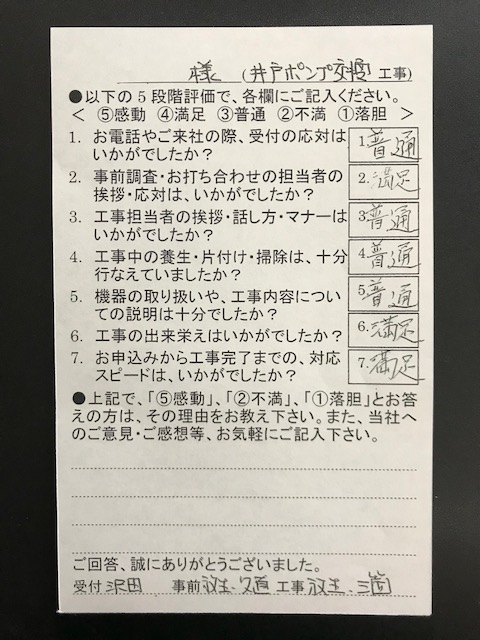 様 (井戸ポンプ交換 工事)
●以下の5段階評価で、各欄にご記入ください。
< ⑤感動 ④満足 ③普通 ②不満 ①落胆 >
1. お電話やご来社の際、受付の応対は
いかがでしたか?
1.普通
2. 事前調査・お打ち合わせの担当者の
挨拶・応対は、いかがでしたか?
2.満足
3. 工事担当者の挨拶・話し方・マナーは
いかがでしたか?
3.普通
4. 工事中の養生・片付け・掃除は、十分
行なえていましたか?
4.普通
5. 機器の取り扱いや、工事内容につい
ての説明は十分でしたか?
5.普通
6. 工事の出来栄えはいかがでしたか?
6.満足
7. お申込みから工事完了までの、対応
スピードは、いかがでしたか?
7.満足
●上記で、「⑤感動」、「②不満」、「①落胆」とお答
えの方は、その理由をお教え下さい。また、当社へ
のご意見・ご感想等、お気軽にご記入下さい。
ご回答、誠にありがとうございました。
受付 沢田 事前 工事